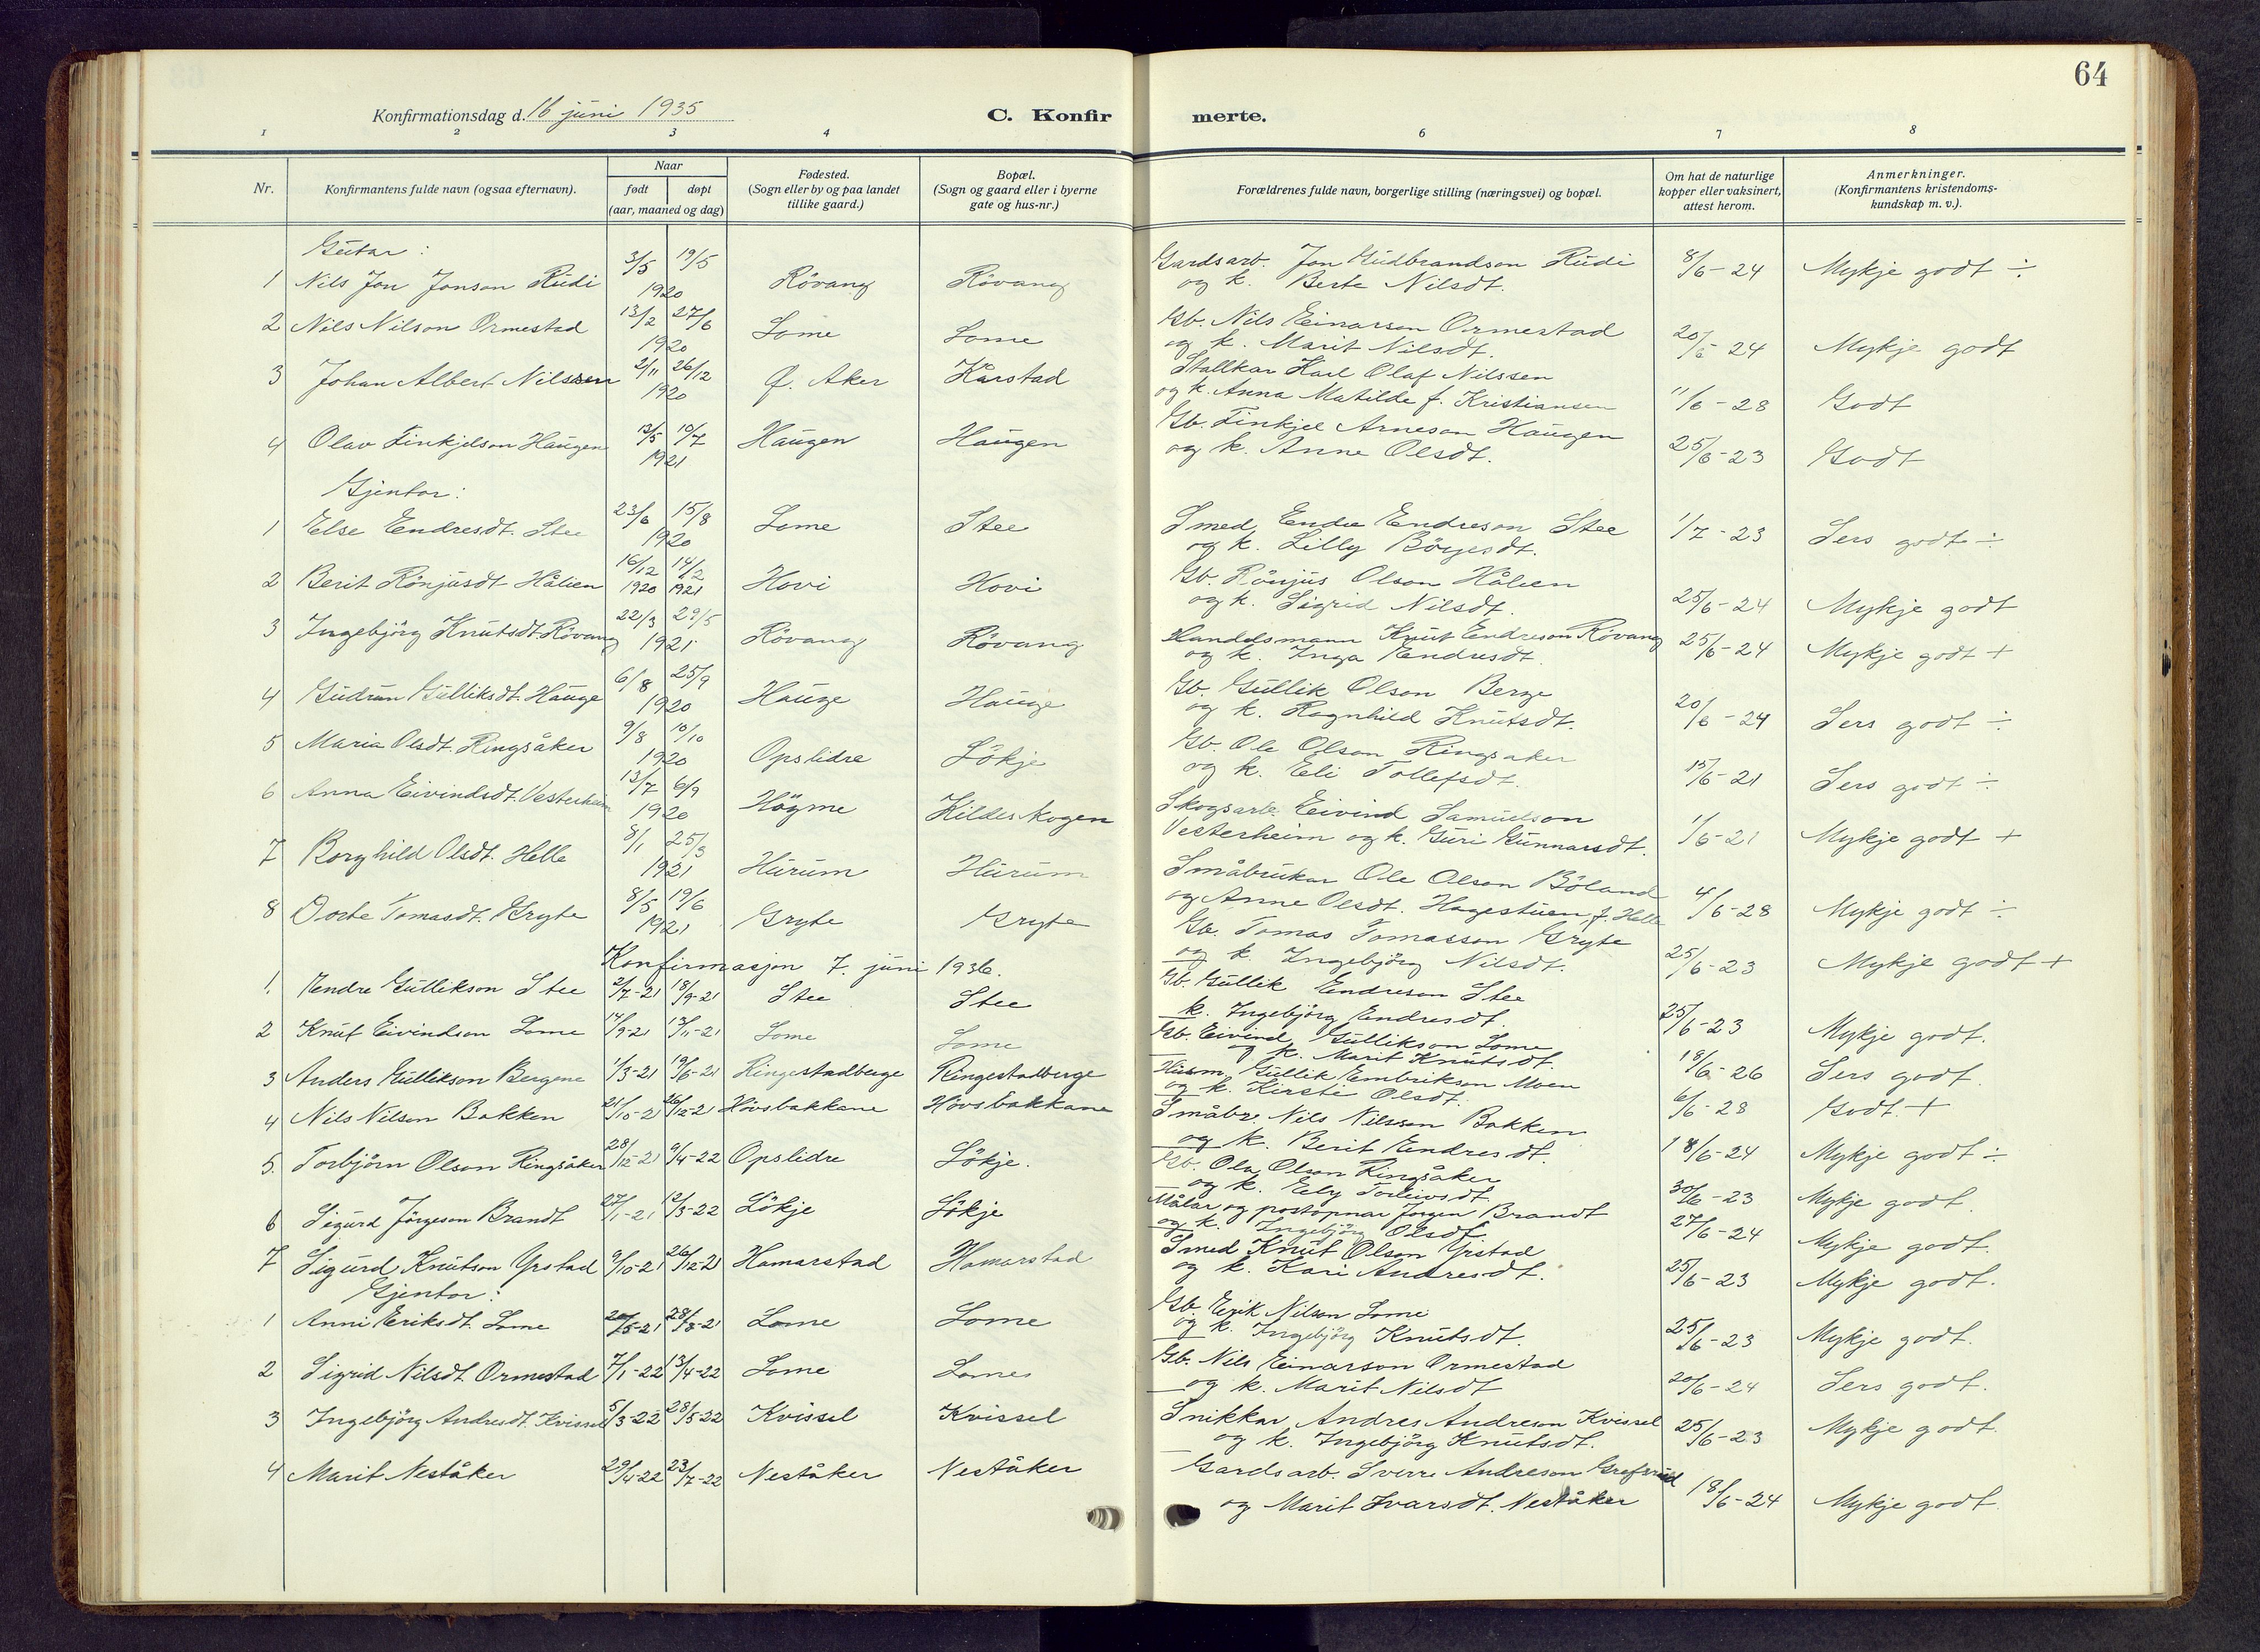 64
Konfirmationsdag d. 16 juni 1935
C. Konfir merte.
1 2 3 4 6 7 8
Nr. Konfirmantens fulde navn (ogsaa efternavn). Naar født døpt (aar, maaned og dag) Fødested. (Sogn eller by og paa landet tillike gaard.) Bopæl. (Sogn og gaard eller i byerne gate og hus-nr.) Forældrenes fulde navn, borgerlige stilling (næringsvei) og bopæl. Om hat de naturlige kopper eller vaksinert, attest herom. Anmerkninger. (Konfirmantens kristendoms-kundskap m. v.).
Gutar:
1 Nils Jon Jonson Rudi 3/5 19/5 1920 Rövang Rövang Gardsarb. Jon Gudbrandson Rudi og k. Berte Nilsdt. 8/6-24 Mykje godt ÷
2 Nils Nilson Ormestad 13/2 27/6 1920 Lome Lome Gb. Nils Einarson Ormestad og k. Marit Nilsdt. 20/6-24 Mykje godt
3 Johan Albert Nilssen 2/11 26/12 1920 Ø. Aker Karstad Stallkar Karl Olaf Nilssen og k. Anna Matilde f. Kristiansen 11/6-28 Godt
4 Olav Finkjelson Haugen 13/5 10/7 1921 Haugen Haugen Gb. Finkjel Arneson Haugen og k. Anne Olsdt. 25/6-23 Godt
Gjentor:
1 Else Endresdt. Stee 23/6 15/8 1920 Lome Stee Smed Endre Endreson Stee og k. Lilly Börgesdt. 1/7-23 Sers godt ÷
2 Berit Rönjusdt Hålien 16/12 1920 14/2 1921 Hovi Hovi Gb. Rönjus Olson Hålien og k. Sigrid Nilsdt. 25/6-24 Mykje godt
3 Ingebjörg Knutsdt Rövang 22/3 29/5 1921 Rövang Rövang Handelsmann Knut Endreson Rövang og k. Inga Endresdt. 25/6-24 Mykje godt +
4 Gudrun Gulliksdt. Hauge 6/8 25/9 1920 Hauge Hauge Gb. Gullik Olson Berge og k. Ragnhild Knutsdt. 20/6-24 Sers godt ÷
5 Maria Olsdt. Ringsåker 9/8 10/10 1920 Opslidre Lökje Gb. Ole Olson Ringsaker og k. Eli Tollefsdt. 15/6-21 Sers godt ÷
6 Anna Eivindsdt. Vesterheim 13/7 6/9 1920 Högme Kildeskogen Skogsarb. Eivind Samuelson Vesterheim og k. Guri Gunnarsdt. 1/6-21 Mykje godt +
7 Borghild Olsdt. Helle 8/1 25/3 1921 Hurum Hurum Småbrukar Ole Olson Böland og Anne Olsdt. Hagestuen, f. Helle 4/6-28 Mykje godt ÷
8 Dorte Tomasdt. Gryte 8/5 19/6 1921 Gryte Gryte Gb. Tomas Tomasson Gryte og k. Ingebjörg Nilsdt. 25/6-23 Mykje godt +
Konfirmasjon 7. juni 1936.
1. Endre Gullikson Stee 2/7-21 18/9-21 Stee Stee Gb. Gullik Endreson Stee k. Ingebjörg Endresdt. 25/6-23 Mykje godt.
2 Knut Eivindson Lome 14/9-21 13/11-21 Lome Lome Gb. Eivind Gullikson Lome og k. Marit Knutsdt. 18/6-26 Sers godt.
3 Anders Gullikson Bergene 1/3-21 19/6-21 Ringestadberge Ringestadberge Husm. Gullik Embrikson Moen og k. Kirsti Olsdt. 6/6-28 Godt. +
4 Nils Nilsen Bakken 21/10-21 26/12-21 Hovsbakkane Hovsbakkane Småbr. Nils Nilsson Bakken og k. Berit Endresdt. 18/6-24 Mykje godt ÷
5. Torbjörn Olson Ringsåker 28/12-21 9/4-22 Opslidre Lökje. Gb. Ola Olson Ringsåker og k. Torleivsdt. 30/6-23 Mykje godt.
6 Sigurd Jörgeson Brandt Lökje Lökje Målar og postopnar Jörgen Brandt og k. Ingebjörg Olsdt. 27/6-24 Mykje godt.
7 Sigurd Knutson Yrstad 9/10-21 26/12-21 Hamarstad Hamarstad Smed Knut Olson Yrstad og k. Kari Andresdt. 25/6-23 Mykje godt.
Gjentor:
1 Anni Eriksdt. Lome 20/5-21 28/8-21 Lome Lome Gb. Erik Nilson Lome og k. Ingebjörg Knutsdt. 25/6-23 Mykje godt.
2 Sigrid Nilsdt. Ormestad 7/1-22 13/4-22 Lome Lome Gb. Nils Einarson Ormestad og k. Marit Nilsdt 20/6-24 Sers godt.
3 Ingebjörg Andresdt. Kvissel 5/3-22 28/5-22 Kvissel Kvissel Snikkar Andres Andreson Kvissel og k. Ingebjörg Knutsdt. 25/6-23 Mykje godt.
4 Marit Neståker 29/4-22 23/7-22 Neståker Neståker Gardsarb. Sverre Andreson Grefsrud og Marit Ivarsdt. Neståker 18/6-24 Mykje godt.